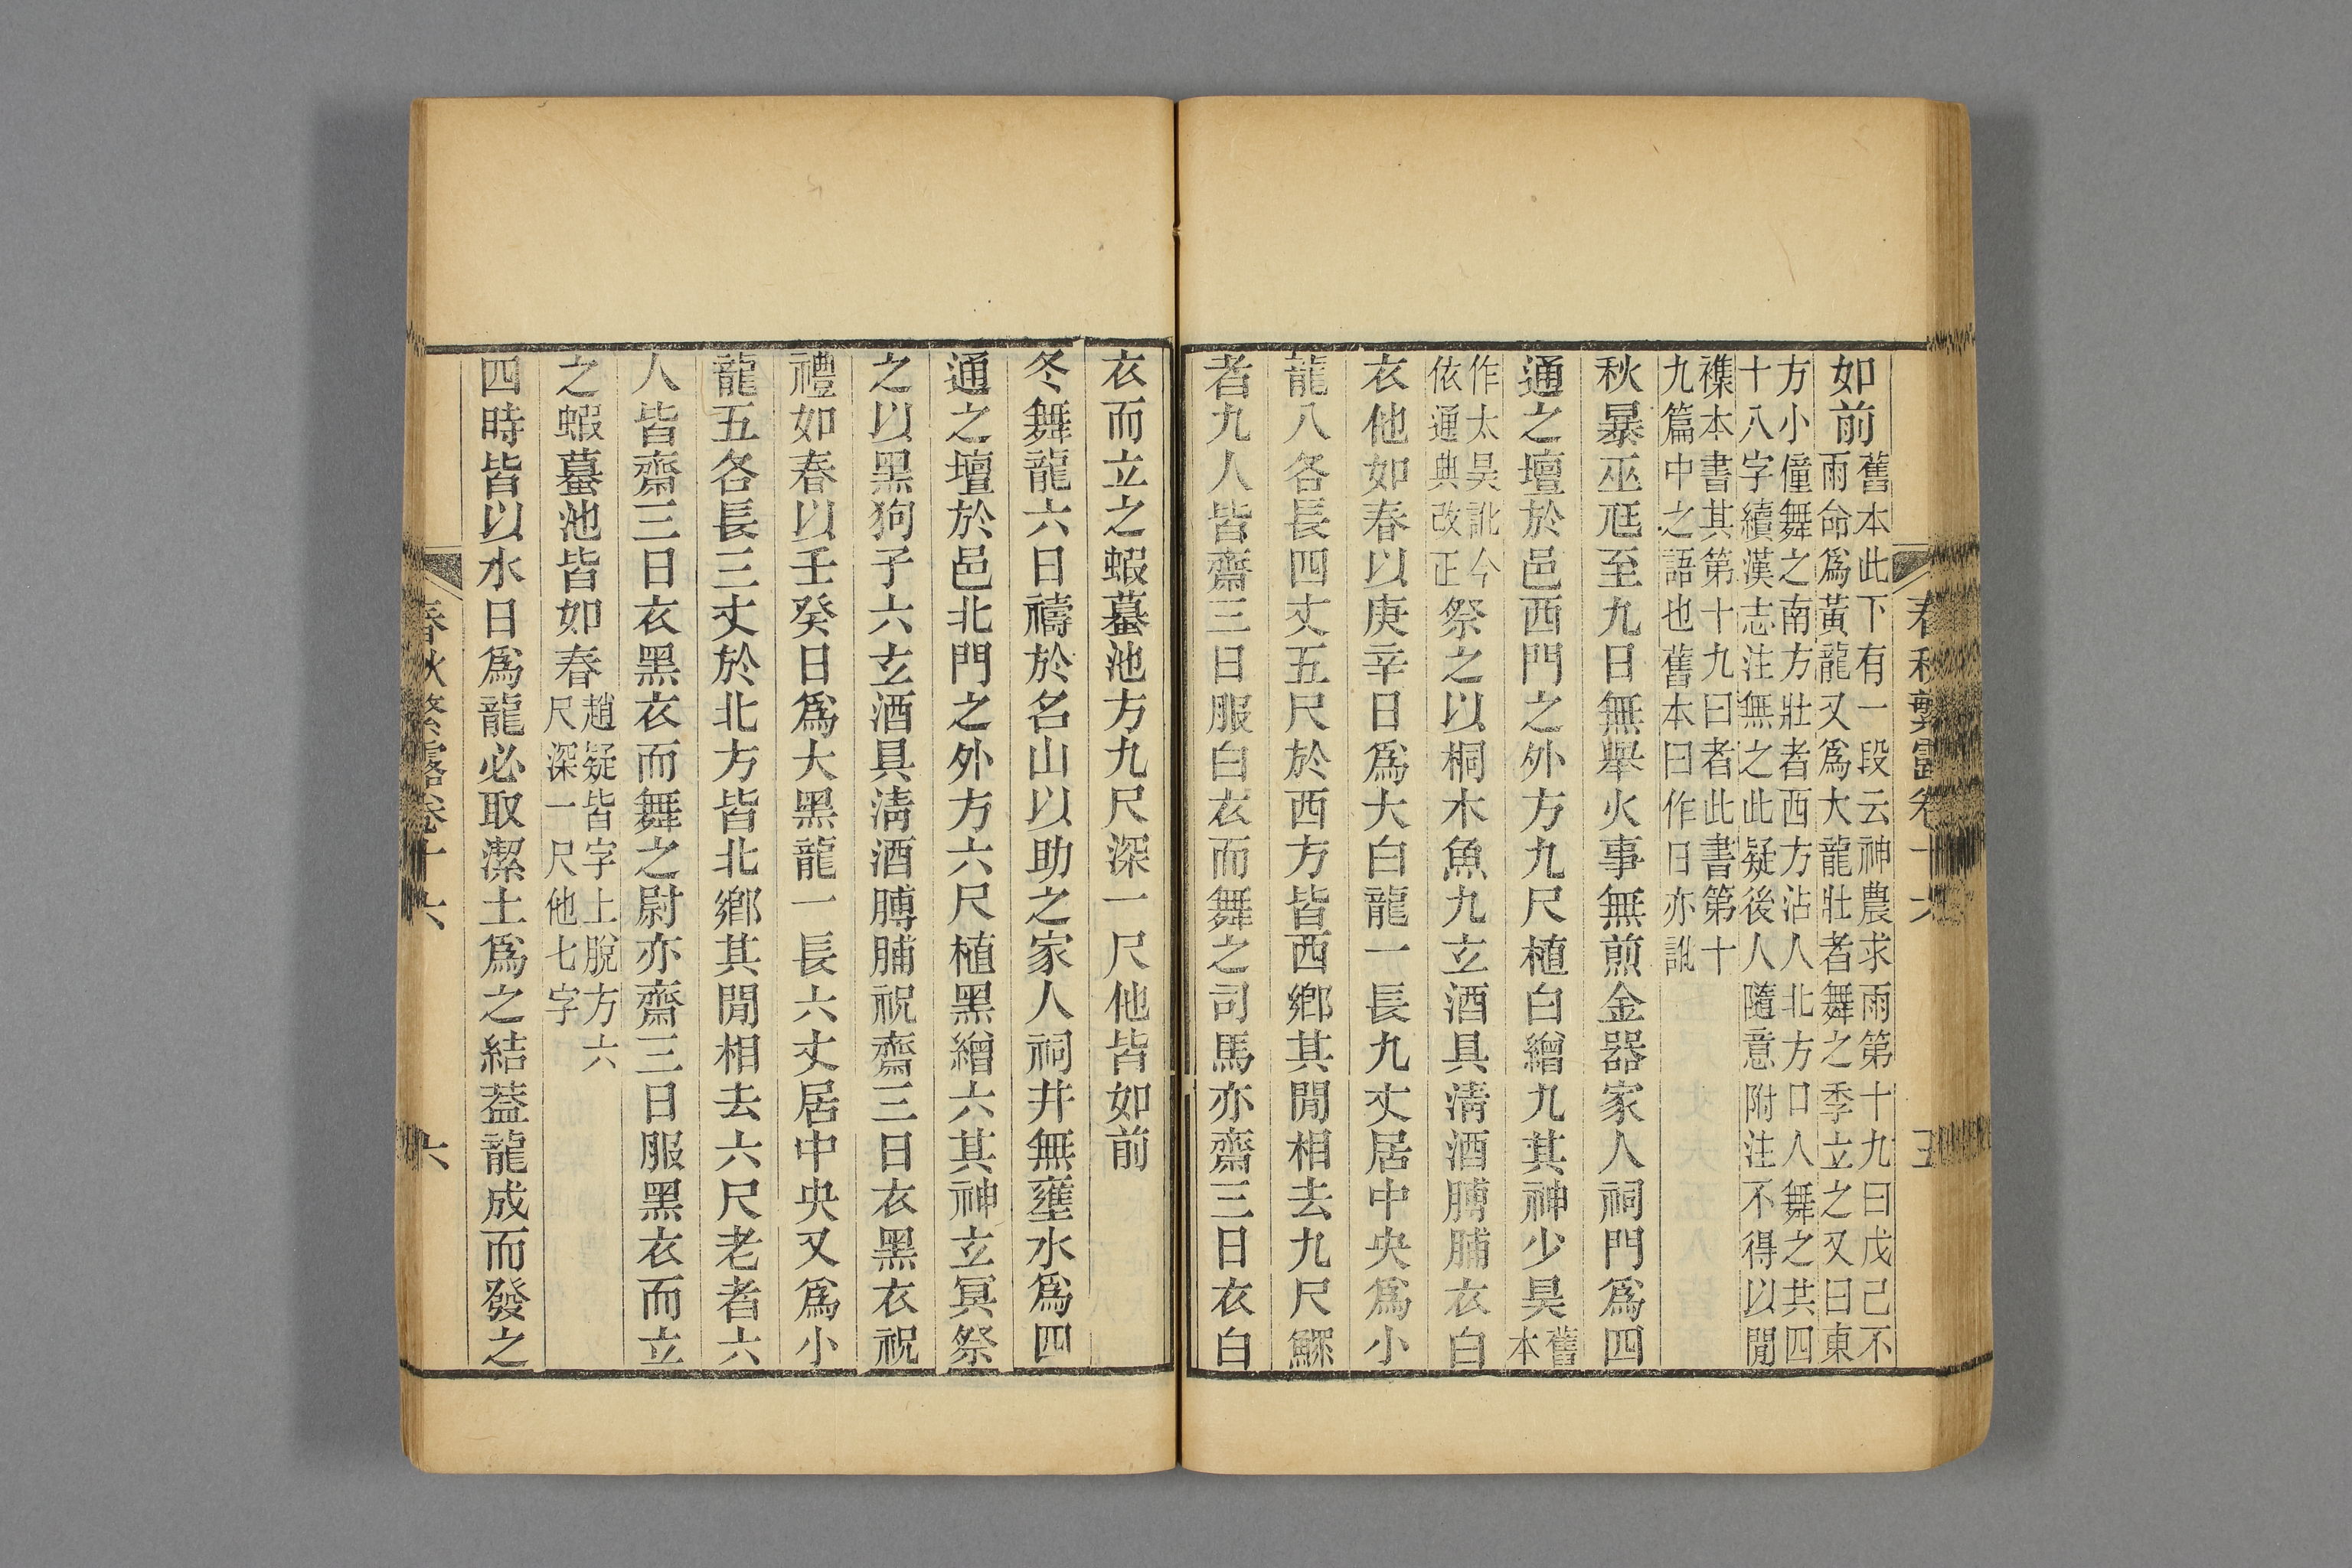 春秋繁露卷十六 五
如前舊本此下有一段云神農求雨第十九曰戊己不雨命爲黃龍又爲大龍壯者舞之季立之又曰東
方小僮舞之南方壯者西方沾人北方口人舞之共四十八字續漢志注無之此疑後人隨意附注不得以閒
襍本書其第十九曰者此書第十九篇中之語也舊本曰作日亦訛
秋暴巫尫至九日無舉火事無煎金器家人祠門爲四
通之壇於邑西門之外方九尺植白繒九其神少昊舊本
作太昊訛今依通典改正祭之以桐木魚九玄酒具淸酒膊脯衣白
衣他如春以庚辛日爲大白龍一長九丈居中央爲小
龍八各長四丈五尺於西方皆西鄕其閒相去九尺鰥
者九人皆齋三日服白衣而舞之司馬亦齋三日衣白
衣而立之蝦蟇池方九尺深一尺他皆如前
冬舞龍六日禱於名山以助之家人祠井無壅水爲四
通之壇於邑北門之外方六尺植黑繒六其神玄冥祭
之以黑狗子六玄酒具淸酒膊脯祝齋三日衣黑衣祝
禮如春以壬癸日爲大黑龍一長六丈居中央又爲小
龍五各長三丈於北方皆北鄕其閒相去六尺老者六
人皆齋三日衣黑衣而舞之尉亦齋三日服黑衣而立
之蝦蟇池皆如春趙疑皆字上脫方六尺深一尺他七字
四時皆以水日爲龍必取潔土爲之結蓋龍成而發之
春秋繁露卷十六 六